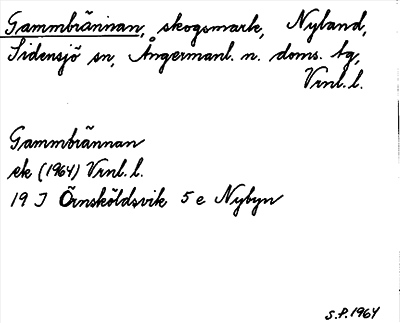 Gammbrännan, skogsmark, Nyland,
Sidensjö sn, Ångermanl. n. doms. tg,
Vrnl. l.
Gammbrännan
ek (1964) Vrnl. l.
19 J Örnsköldsvik 5 e Nybyn
S.P. 1964